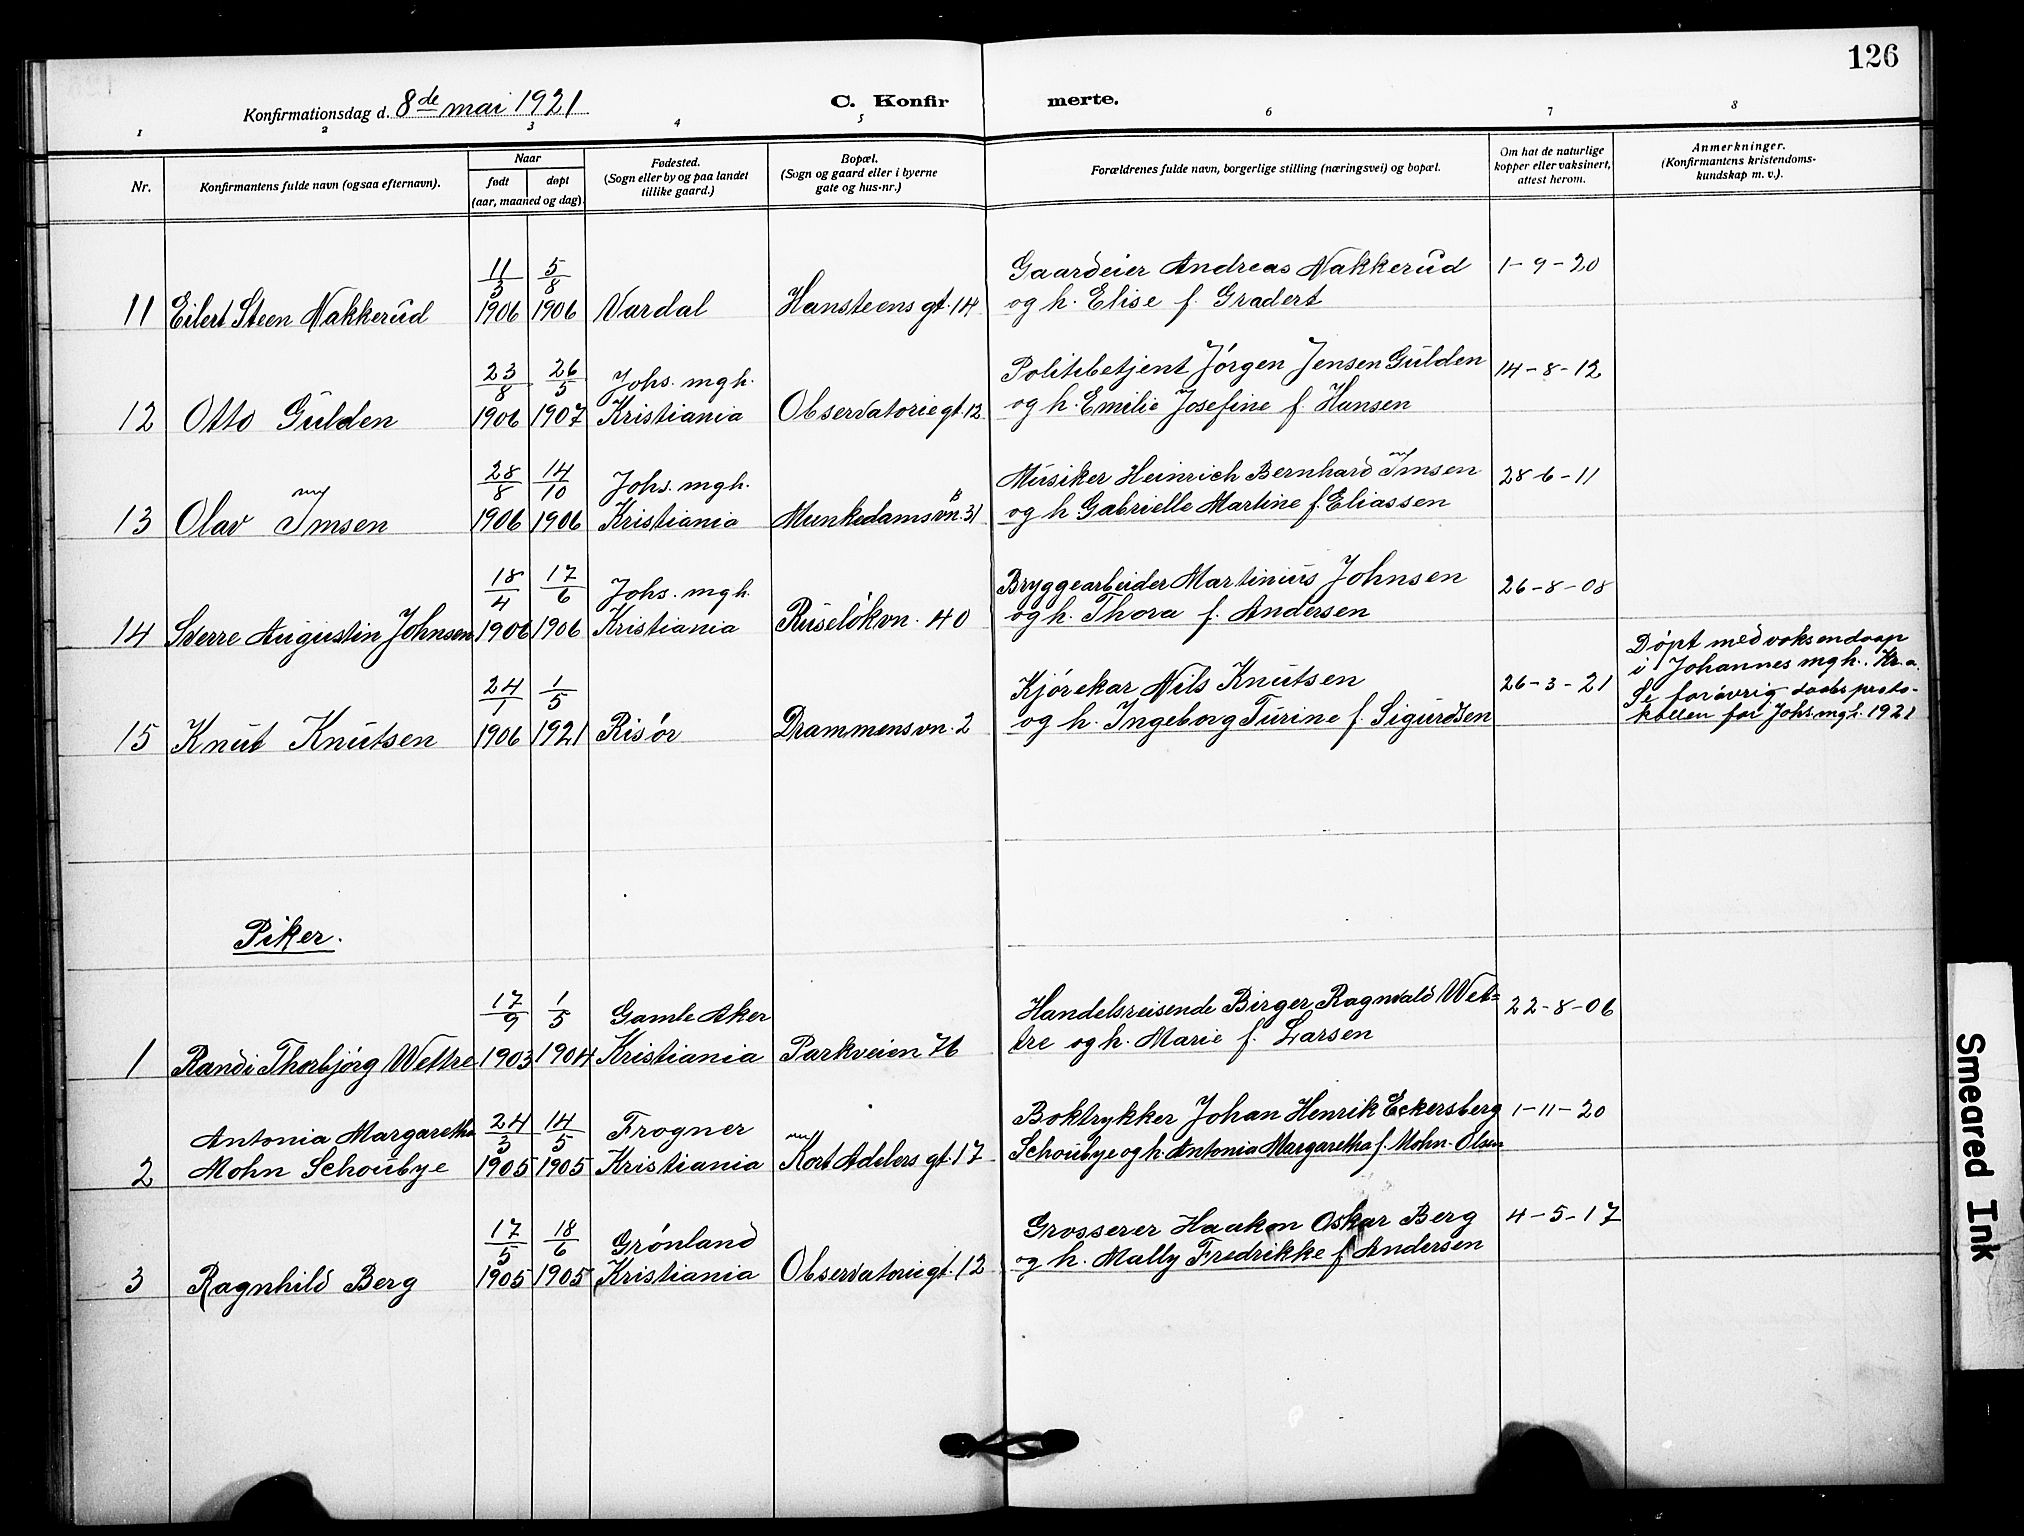 126
Konfirmationsdag d. 8de mai 1921
C. Konfir
merte.
1 2 3 4 5 6 7 8
Nr.
Konfirmantens fulde navn (ogsaa efternavn).
Naar
født døpt
(aar, maaned og dag).
Fødested.
(Sogn eller by og paa landet
tillike gaard.)
Bopæl.
(Sogn og gaard eller i byerne
gate og hus-nr.)
Forældrenes fulde navn, borgerlige stilling (næringsvei) og bopæl.
Om hat de naturlige
kopper eller vaksinert,
attest herom.
Anmerkninger.
(Konfirmantens kristendoms-
kundskap m. v.).
11/3 5/8 Gaardeier Andreas Nakkerud 1-9-20
11 Eilert Steen Nakkerud 1906 1906 Vardal Hansteens gt. 14 og h. Elise f. Gradert
23/8 26/5 Johs. mgh. Politibetjent Jørgen Jensen Gulden 14-8-12
12 Otto Gulden 1906 1907 Kristiania Observatoriegt. 12 og h. Emilie Josefine f. Hansen
28/8 14/10 Johs. mgh. Musiker Heinrich Bernhard Imsen 28-6-11
13 Olav Imsen 1906 1906 Kristiania Munkedamsvn. 31 B og h. Gabrielle Martine f. Eliassen
18/4 17/6 Johs. mgh. Bryggearbeider Martinius Johnsen 26-8-08
14 Sverre Augustin Johnsen 1906 1906 Kristiania Ruseløkvn. 40 og h. Thora f. Andersen
24/1 1/5 Kjørekar Nils Knutsen 26-3-21
15 Knut Knutsen 1906 1921 Risør Drammensvn. 2 og h. Ingeborg Turine f. Sigurdsen
Døpt med voksendaap
i Johannes mgh., Kr.a.
Se forøvrig daabsproto-
kollen for Johs. mgh. 1921
Piker.
17/9 1/5 Gamle Aker Handelsreisende Birger Ragnvald Wet= 22-8-06
1 Randi Thorbjørg Wettre 1903 1904 Kristiania Parkveien 76 tre og h. Marie f. Larsen
Antonia Margaretha 24/3 14/5 Frogner Boktrykker Johan Henrik Eckersberg 1-11-20
2 Mohn Schoubye 1905 1905 Kristiania Kort Adelers gt. 17 Schoubye og h. Antonia Margaretha f. Mohn-Olsen
17/5 18/6 Grønland Grosserer Haakon Oskar Berg 4-5-17
3 Ragnhild Berg 1905 1905 Kristiania Observatoriegt. 12 og h. Mally Fredrikke f. Andersen
Smeared Ink